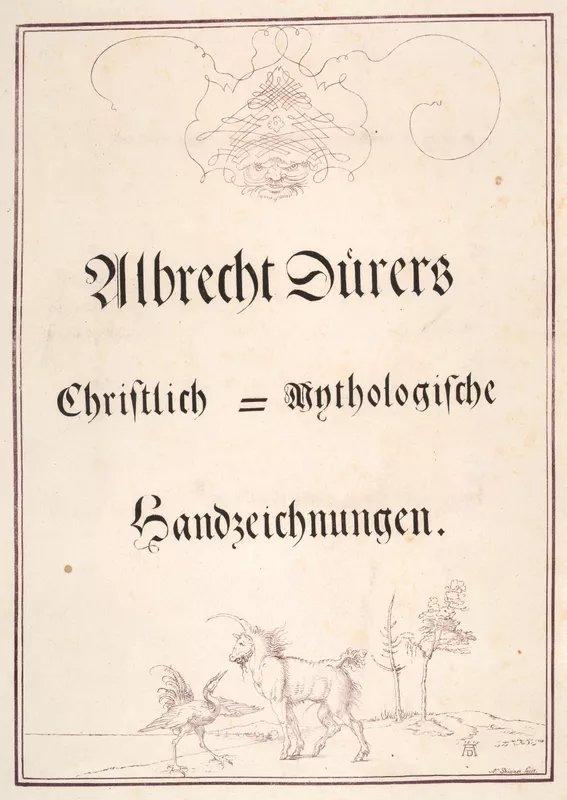 Albrecht Dürers
Chriſtlich = Mythologiſche
Handzeichnungen.
AD